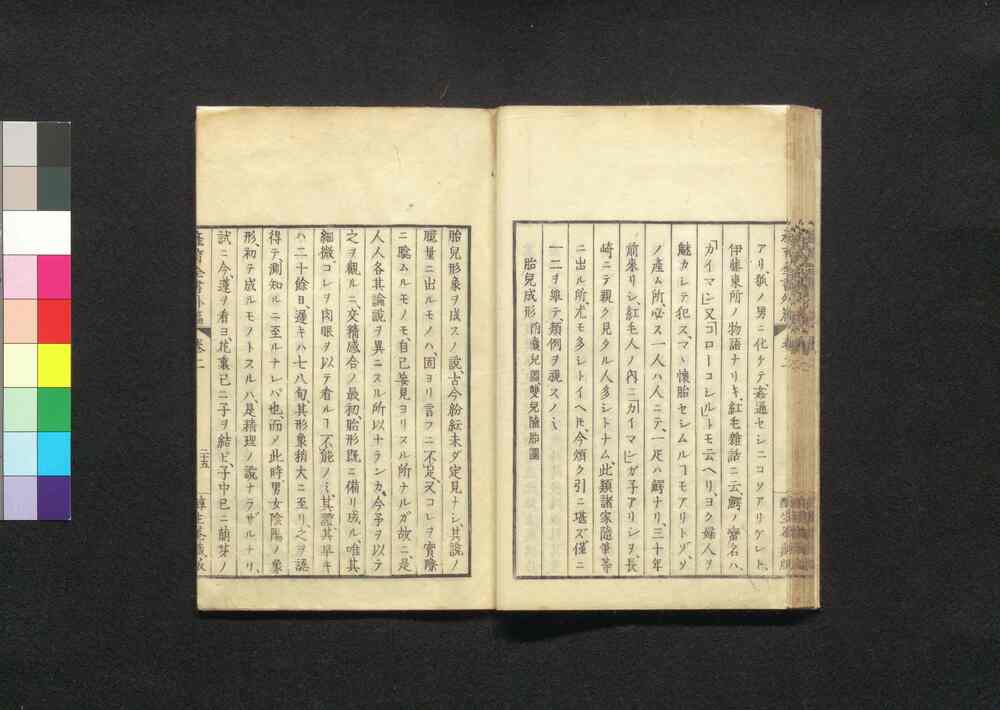 アリ、狐ノ男ニ化ケテ、姦通セシニコソアリケレト、
伊藤東所ノ物語ナリキ、紅毛雑話ニ云、鰐ノ蛮名ハ、
「カイマン」又「コローコレル」トモ云ヘリ、ヨク婦人ヲ
魅カシテ犯ス、マヽ懐胎セシムルヿモアリトゾ、ソ
ノ産ム所、必ス一人ハ人ニテ、一疋ハ鰐ナリ、三十年
前来リシ、紅毛人ノ内ニ「カイマン」ガ子アリシヲ、長
崎ニテ親ク見タル人多シトナム、此類諸家随筆等
ニ出ル所、尤モ多シトイヘ𪜈、今煩ク引ニ堪ズ、僅ニ
一二ヲ挙テ、類例ヲ覗スノミ、
胎児成形
胎児形象ヲ成スノ説、古今紛紜未ダ定見ナシ、其説ノ
臆量ニ出ルモノハ、固ヨリ言フニ不足、又コレヲ實際
ニ驗ムルモノモ、自己妄見ヨリスル所ナルガ故ニ、是
人人各其論説ヲ異ニスル所以ナランカ、今予ヲ以テ
之ヲ觀ルニ、交精感合ノ最初、胎形既ニ備リ成ル、唯其
細微コレヲ肉眼ヲ以テ看ルヿ不能ノミ、其證其早キ
ハ二十餘日、遲キハ七八旬、其形象稍大ニ至リ、之ヲ認
得テ、測知ルニ至ルナレバ也、而ノ此時男女陰陽ノ象
形、初テ成ルモノトスルハ、是精理ノ説ナラザルナリ、
試ニ今、蓮ヲ看ヨ、花裏已ニ子ヲ結ビ、子中已ニ萌芽ノ
卷二
二十五